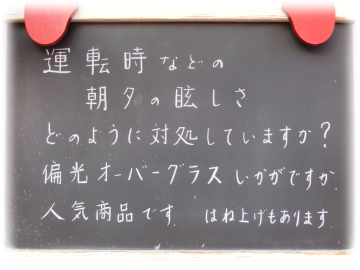 運転時などの
朝夕の眩しさ
どのように対処していますか?
偏光オーバーグラスいかがですか
人気商品です はね上げもあります